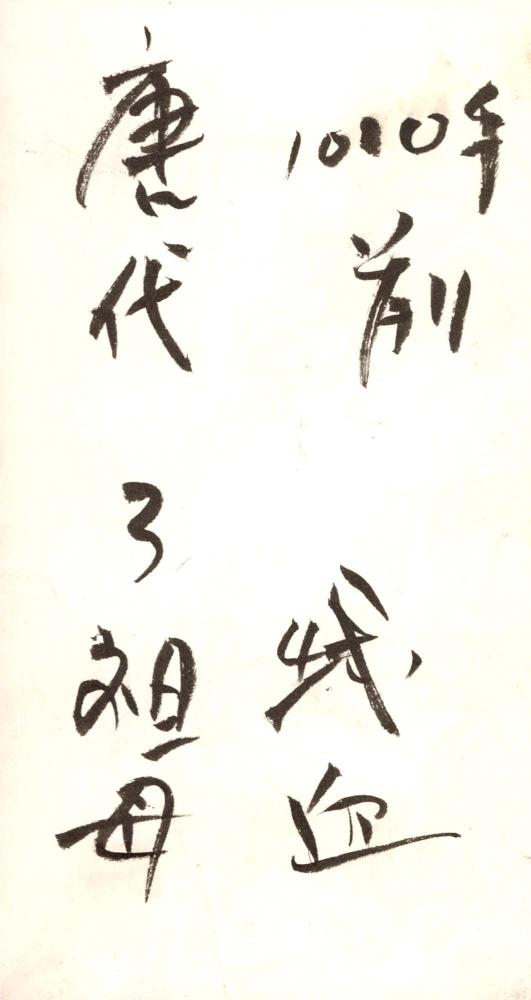 1010年
前
唐代
我
了祖母